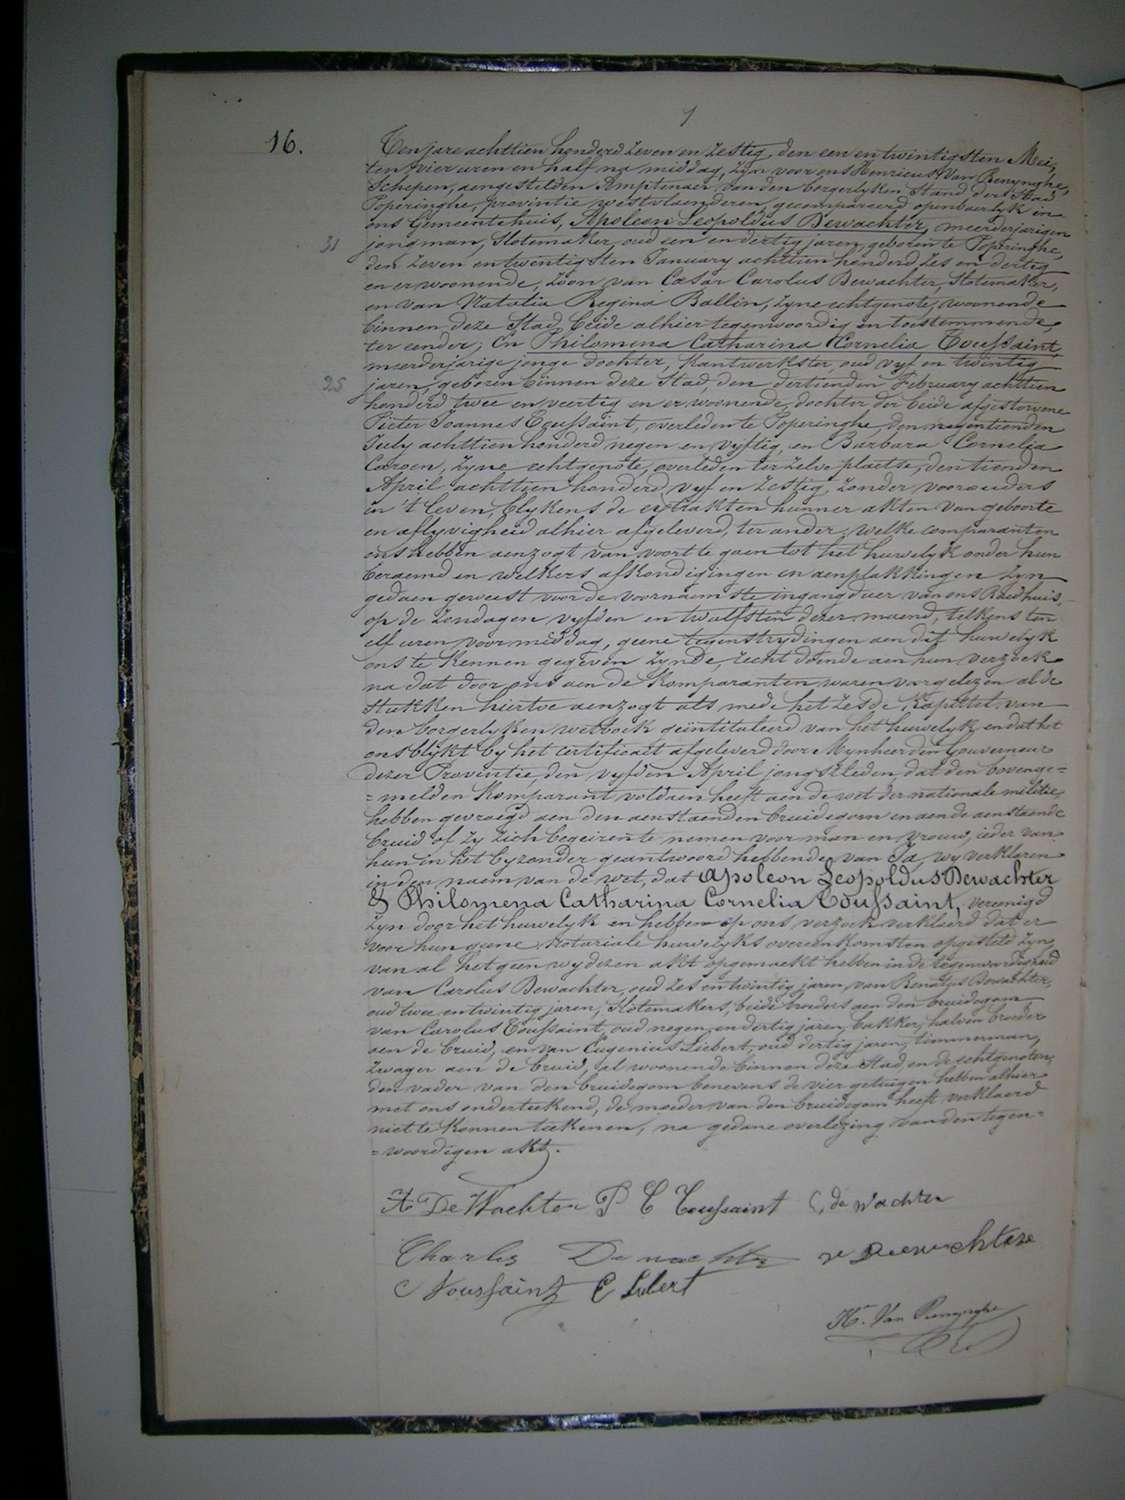 7
16.
Ten jare achttien honderd zeven en zestig, den een en twintigsten Mei,
ten vier uren en half na middag, zyn voor ons Henricus Van Renynghe,
Schepen, aengestelden Amptenaer van den borgerlyken Stand der Stad
Poperinghe, provintie westvlaenderen, gecompareerd openbaerlyk in
ons Gemeentehuis, Apoleon Leopoldus Dewachter, meerderjarigen
31 jongman, slotemaker, oud een en dertig jaren, geboren te Poperinghe,
den zeven en twintigsten January achttien honderd zes en dertig
en er woonende, zoon van Cæsar Carolus Dewachter, slotemaker,
en van Natalia Regina Ballin, zyne echtgenote, woonende
binnen deze Stad, beide alhier tegenwoordig en toestemmende,
ter eender; En Philomena Catharina Cornelia Toussaint,
meerderjarige jonge dochter, kantwerkster, oud vyf en twintig
25 jaren, geboren binnen deze Stad, den dertienden February achttien
honderd twee en veertig en er woonende, dochter der beide afgestorvene
Pieter Joannes Toussaint, overleden te Poperinghe den negentienden
July achttien honderd negen en vyftig, en Barbara Cornelia
Caroen, zyne echtgenote, overleden ter zelve plaetse, den tienden
April achttien honderd vyf en zestig, zonder voorouders
in 't leven, blykens de extrakten hunner akten van geboorte
en aflyvigheid alhier afgeleverd, ter ander; welke comparanten
ons hebben aenzogt van voort te gaen tot het huwelyk onder hun
beraemd en welkers afkondigingen en aenplakkingen zyn
gedaen geweest voor de voornaemste ingangdeur van ons Raedhuis,
op de zondagen vyfden en twalfsten dezer maend, telkens ten
elf uren voormiddag, geene tegenstrydingen aen dit huwelyk
ons te kennen gegeven zynde, recht doende aen hun verzoek
na dat door ons aen de Komparanten waren voorgelezen al de
stukken hiertoe aenzogt als mede het zesde Kapittel van
den borgerlyken wetboek geïntituleerd van het huwelyk, en dat het
ons blykt by het certificaet afgeleverd door Mynheer den Gouverneur
dezer Provintie den vyfden April jongstleden, dat den bovenge=
=melden Komparant voldaen heeft aen de wet der nationale militie,
hebben gevraegd aen den aenstaenden bruidegom en aen de aenstaende
bruid of zy zich begeiren te nemen voor man en vrouw, ieder van
hun in het byzonder geantwoord hebbende van Ja, wy verklaren
in den naem van de wet, dat Apoleon Leopoldus Dewachter
& Philomena Catharina Cornelia Toussaint, vereenigd
zyn door het huwelyk en hebben op ons verzoek verklaerd dat er
voor hun geene Notariale huwelyks overeenkomsten opgesteld zyn,
van al het geen wy dezen akt opgemaekt hebben in de tegenwoordigheid
van Carolus Dewachter, oud zes en twintig jaren, van Renatus Dewachter,
oud twee en twintig jaren, slotemakers, beide broeders aen den bruidegom
van Carolus Toussaint, oud negen en dertig jaren, bakker, halven broeder
aen de bruid, en van Eugenius Liebert, oud dertig jaren, timmerman,
zwager aen de bruid, al woonende binnen deze Stad, en de echtgenoten,
den vader van den bruidegom benevens de vier getuigen hebben alhier
met ons onderteekend, de moeder van den bruidegom heeft verklaerd
niet te konnen teekenen, na gedane overlezing van den tegen=
=woordigen akt.
A DeWachter P C Toussaint C, de Wachter
Charles Dewachter r Dewachtere
C Toussaint E Libert
Hri. Van Renynghe